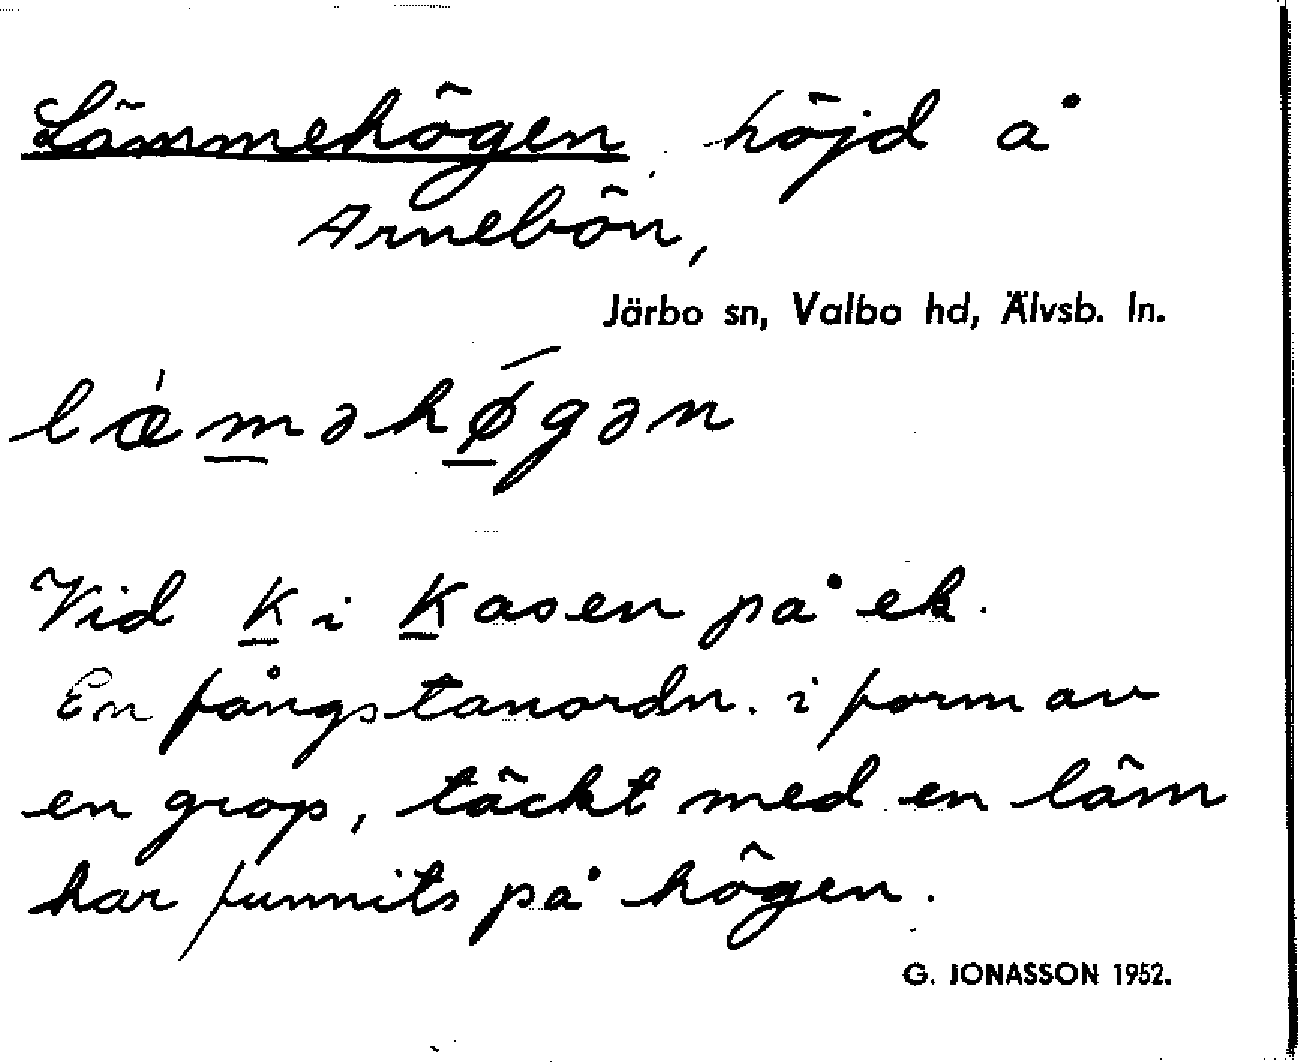 Lämmehögen, höjd å
Arnebön,
Järbo sn, Valbo hd, Älvsb. ln.
læ̀m̲əhǿ̲gən
Vid K̲ i K̲asen på ek.
En fångstanordn. i form av
en grop, täckt med en läm
har funnits på högen.
G. JONASSON 1952.